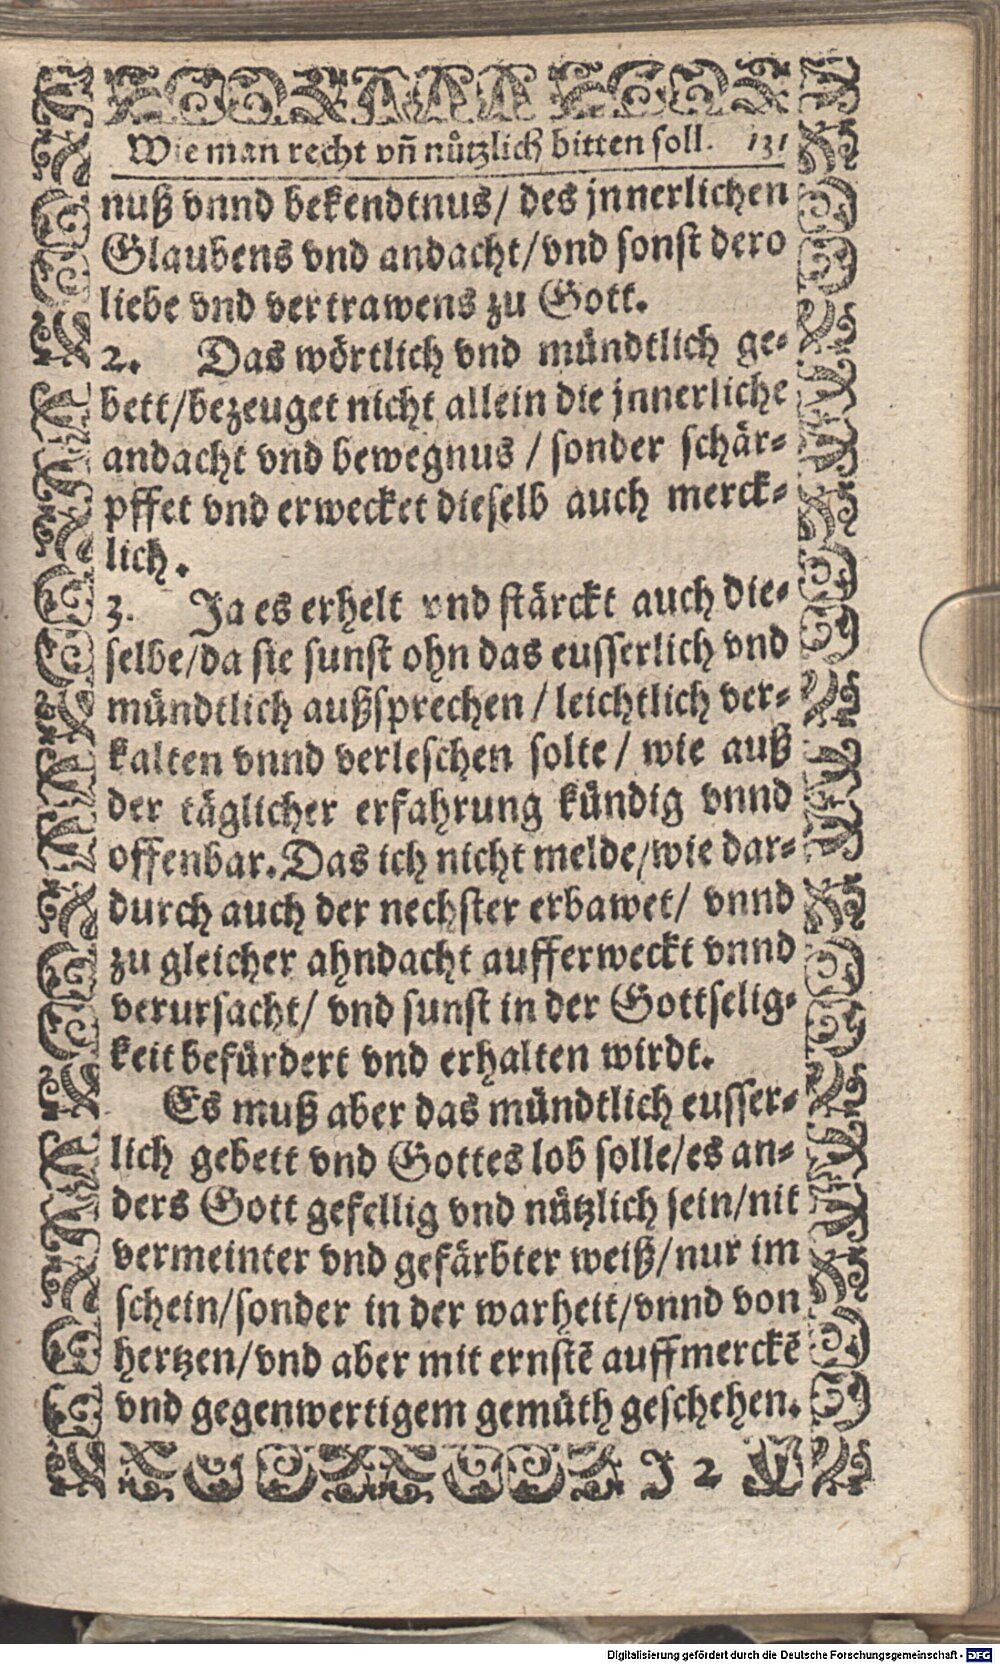 Wie man recht vñ nützlich bitten soll. 131
nuß vnnd bekendtnus/ des jnnerlichen
Glaubens vnd andacht/vnd sonst dero
liebe vnd vertrawens zu Gott.
2. Das wörtlich vnd mündtlich ge-
bett/bezeuget nicht allein die jnnerliche
andacht vnd bewegnus / sonder schär-
pffet vnd erwecket dieselb auch merck-
lich.
3. Ja es erhelt vnd stärckt auch die-
selbe/da sie sunst ohn das eusserlich vnd
mündtlich außsprechen / leichtlich ver-
kalten vnnd verleschen solte / wie auß
der täglicher erfahrung kündig vnnd
offenbar. Das ich nicht melde/wie dar-
durch auch der nechster erbawet/ vnnd
zu gleicher ahndacht aufferweckt vnnd
verursacht/ vnd sunst in der Gottselig-
keit befürdert vnd erhalten wirdt.
Es muß aber das mündtlich eusser-
lich gebett vnd Gottes lob solle/es an-
ders Gott gefellig vnd nützlich sein/nit
vermeinter vnd gefärbter weiß/nur im
schein/sonder in der warheit/vnnd von
hertzen/vnd aber mit ernstē auffmerckē
vnd gegenwertigem gemüth geschehen.
J 2
Digitalisierung gefördert durch die Deutsche Forschungsgemeinschaft - DFG